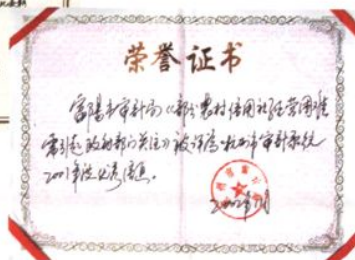 荣誉证书
富阳市审计局《部分农村信用社经营困难
需引起政府部门关注》被评为杭州市审计系统
2001年度优秀信息。